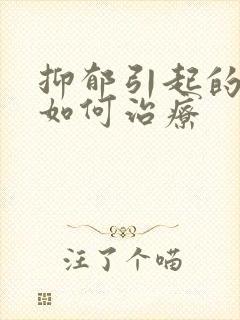 抑郁引起的
如何治疗
注了个喵